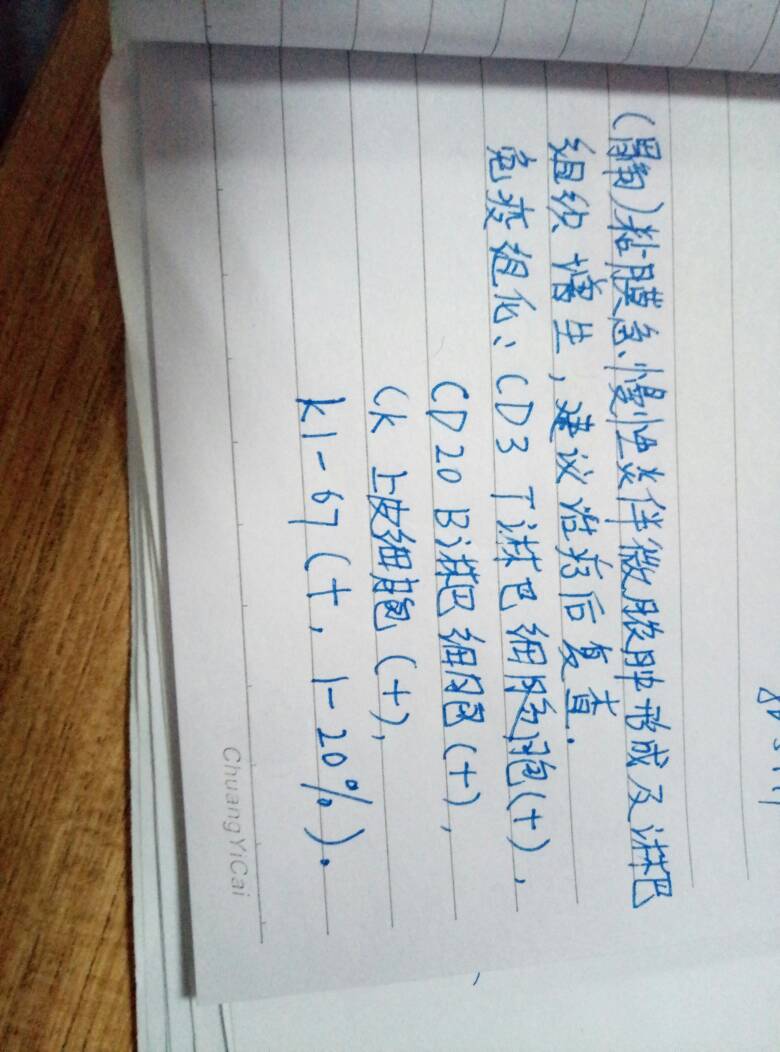 (胃角)粘膜急、慢性炎伴微脓肿形成及淋巴
组织增生,建议治疗后复查.
免疫组化:CD3 T淋巴细胞(+),
CD20 B淋巴细胞(+),
CK 上皮细胞(+),
KI-67(+, 1-20%).
ChuangYiCai